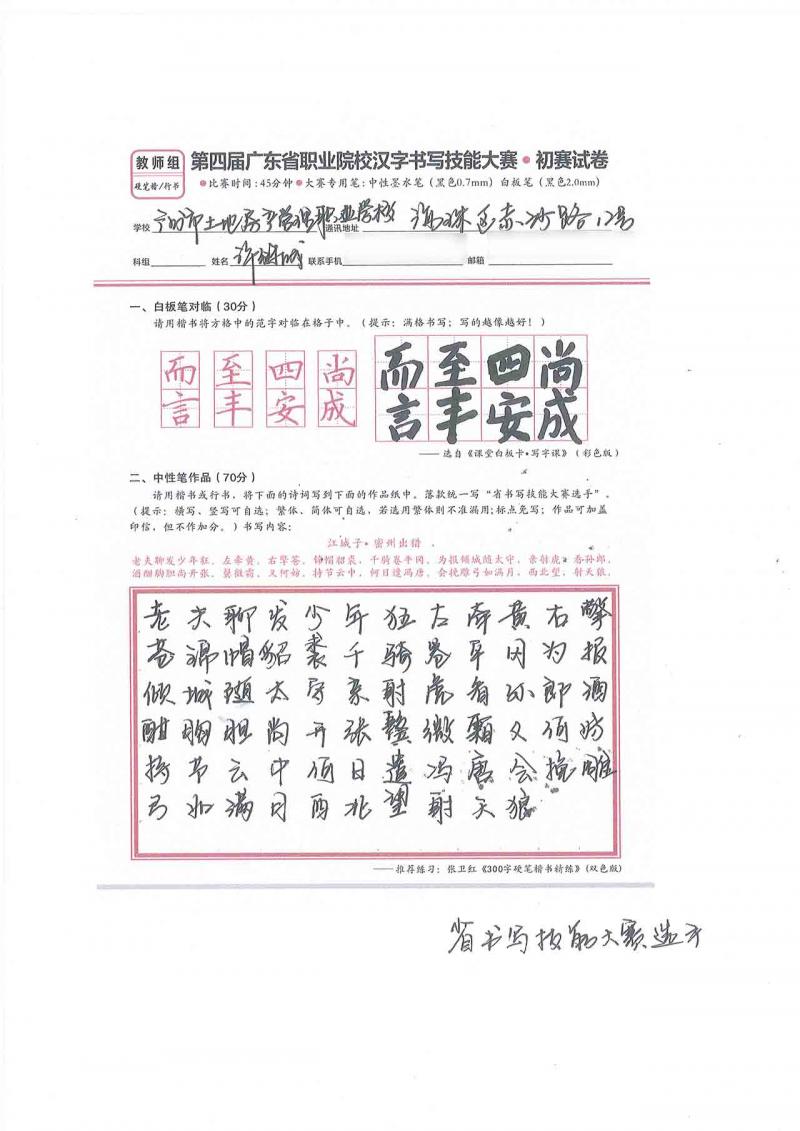 教师组
硬笔楷/行书
第四届广东省职业院校汉字书写技能大赛·初赛试卷
●比赛时间:45分钟●大赛专用笔:中性墨水笔(黑色0.7mm)白板笔(黑色2.0mm)
学校 广州市土地房产管理职业学校 通讯地址 海珠区赤沙路12号
科组 姓名 联系手机 邮箱
一、白板笔对临(30分)
请用楷书将方格中的范字对临在格子中。(提示:满格书写;写的越像越好!)
而 至 四 尚
言 丰 安 成
而至四尚
言丰安成
——选自《课堂白板卡·写字课》(彩色版)
二、中性笔作品(70分)
请用楷书或行书,将下面的诗词写到下面的作品纸中。落款统一写“省书写技能大赛选手”。
(提示:横写、竖写可自选;繁体、简体可自选,若选用繁体则不准漏用;标点免写;作品可加盖
印信,但不作加分。)书写内容:
江城子·密州出猎
老夫聊发少年狂,左牵黄,右擎苍,锦帽貂裘,千骑卷平冈。为报倾城随太守,亲射虎,看孙郎。
酒酣胸胆尚开张,鬓微霜,又何妨。持节云中,何日遣冯唐。会挽雕弓如满月,西北望,射天狼。
老夫聊发少年狂左牵黄右擎
苍锦帽貂裘千骑卷平冈为报
倾城随太守亲射虎看孙郎酒
酣胸胆尚开张鬓微霜又何妨
持节云中何日遣冯唐会挽雕
弓如满月西北望射天狼
——推荐练习:张卫红《300字硬笔楷书精练》(双色版)
省书写技能大赛选手